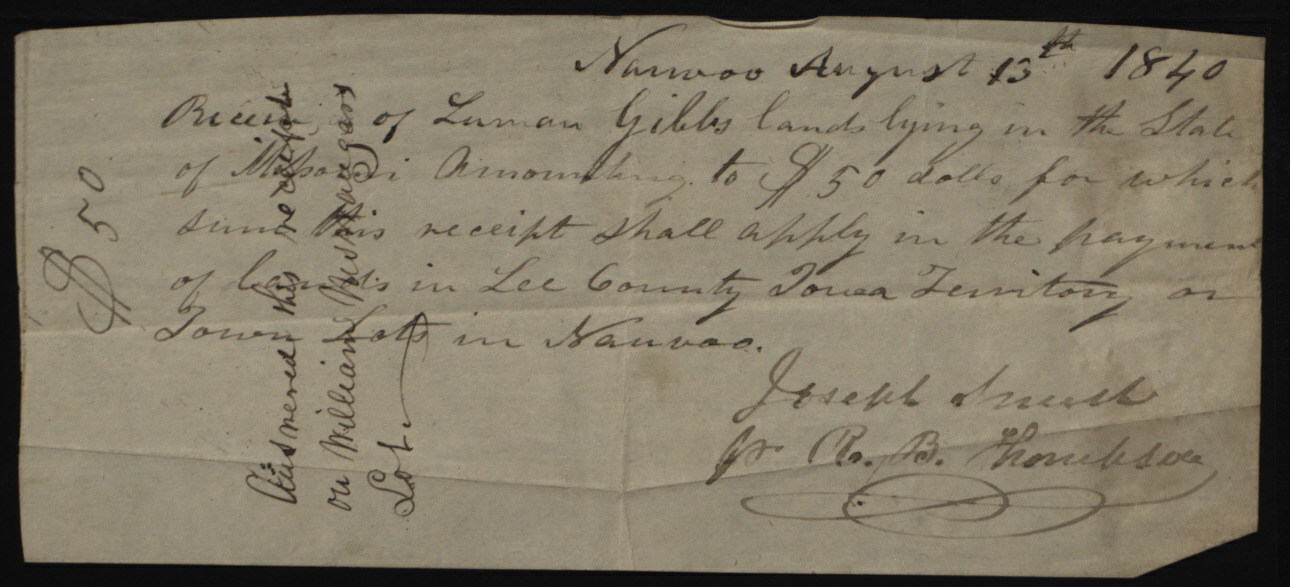 Nauvoo August 13th 1840
of Luman Gibbs lands lying in the State
of Missouri Amounting to $50 dolls for which
sum this receipt shall apply in the payment
of lands in Lee County Iowa Territory or
Town Lots in Nauvoo.
Joseph Smith
pr R. B. Thompson
$50
Answered this receipt
on William
Lot